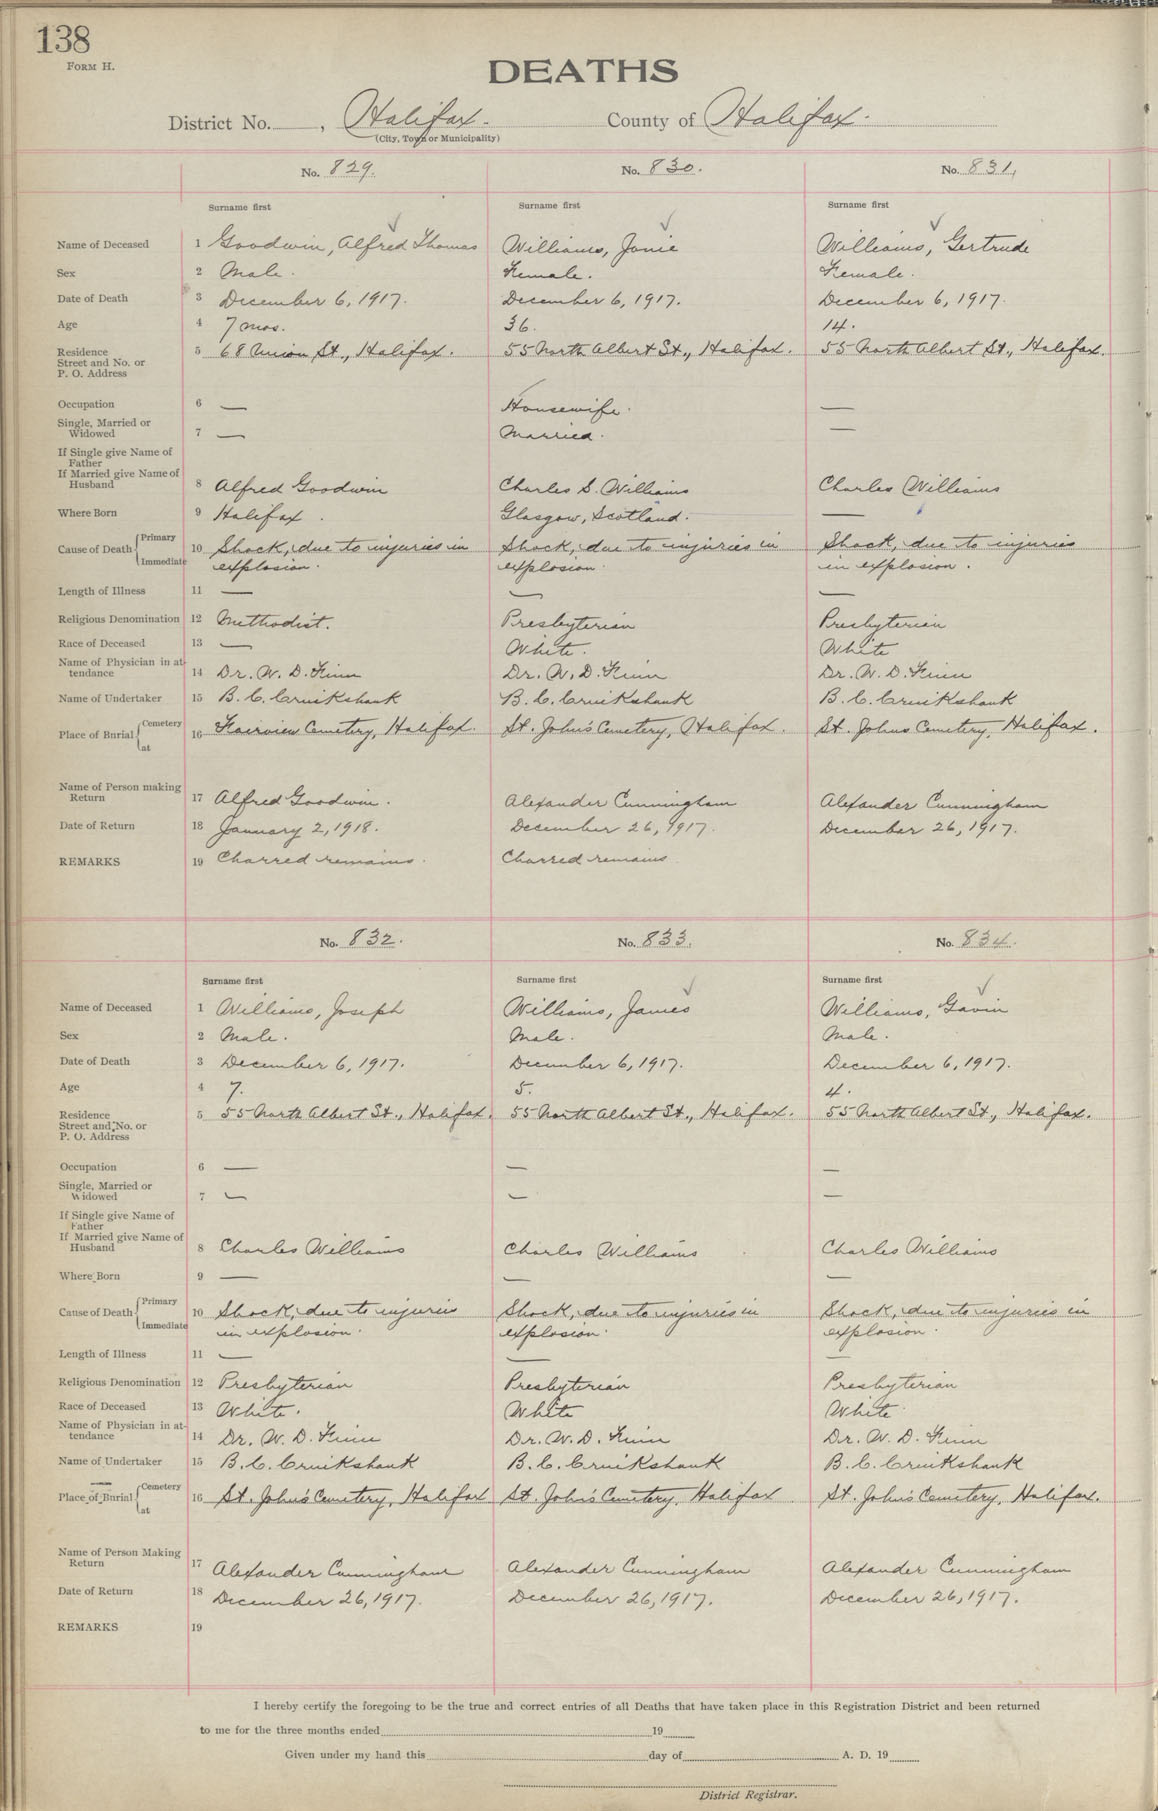 138
FORM H.
DEATHS
District No. , Halifax. County of Halifax.
(City, Town or Municipality)
No. 829. No. 830. No. 831,
Surname first Surname first Surname first
Name of Deceased 1 Goodwin, Alfred Thomas Williams, Janie Williams, Gertrude
Sex 2 Male. Female. Female.
Date of Death 3 December 6, 1917. December 6, 1917. December 6, 1917.
Age 4 7 mos. 36. 14.
Residence 5 68 Union St., Halifax. 55 North Albert St., Halifax. 55 North Albert St., Halifax.
Street and No. or
P. O. Address
Occupation 6 — Housewife. —
Single, Married or
Widowed 7 — Married. —
If Single give Name of
Father
If Married give Name of
Husband 8 Alfred Goodwin Charles S. Williams Charles Williams
Where Born 9 Halifax. Glasgow, Scotland. —
Cause of Death { Primary
Immediate 10 Shock, due to injuries in Shock, due to injuries in Shock, due to injuries
explosion. explosion. in explosion.
Length of Illness 11 — — —
Religious Denomination 12 Methodist. Presbyterian Presbyterian
Race of Deceased 13 — White. White
Name of Physician in at-
tendance 14 Dr. W. D. Finn Dr. W. D. Finn Dr. W. D. Finn
Name of Undertaker 15 B. C. Cruikshank B. C. Cruikshank B. C. Cruikshank
Place of Burial { Cemetery
at 16 Fairview Cemetery, Halifax. St. John's Cemetery, Halifax. St. Johns Cemetery, Halifax.
Name of Person making
Return 17 Alfred Goodwin. Alexander Cunningham Alexander Cunningham
Date of Return 18 January 2, 1918. December 26, 1917. December 26, 1917.
REMARKS 19 Charred remains. Charred remains
No. 832. No. 833. No. 834.
Surname first Surname first Surname first
Name of Deceased 1 Williams, Joseph Williams, James Williams, Gavin
Sex 2 Male. Male. Male.
Date of Death 3 December 6, 1917. December 6, 1917. December 6, 1917.
Age 4 7. 5. 4.
Residence 5 55 North Albert St., Halifax. 55 North Albert St., Halifax. 55 North Albert St., Halifax.
Street and No. or
P. O. Address
Occupation 6 — — —
Single, Married or
Widowed 7 — — —
If Single give Name of
Father
If Married give Name of
Husband 8 Charles Williams Charles Williams Charles Williams
Where Born 9 — — —
Cause of Death { Primary
Immediate 10 Shock, due to injuries Shock, due to injuries in Shock, due to injuries in
in explosion. explosion. explosion.
Length of Illness 11 — — —
Religious Denomination 12 Presbyterian Presbyterian Presbyterian
Race of Deceased 13 White. White White
Name of Physician in at-
tendance 14 Dr. W. D. Finn Dr. W. D. Finn Dr. W. D. Finn
Name of Undertaker 15 B. C. Cruikshank B. C. Cruikshank B. C. Cruikshank
Place of Burial { Cemetery
at 16 St. John's Cemetery, Halifax St. John's Cemetery, Halifax St. John's Cemetery, Halifax.
Name of Person Making
Return 17 Alexander Cunningham Alexander Cunningham Alexander Cunningham
Date of Return 18 December 26, 1917. December 26, 1917. December 26, 1917.
REMARKS 19
I hereby certify the foregoing to be the true and correct entries of all Deaths that have taken place in this Registration District and been returned
to me for the three months ended 19
Given under my hand this day of A. D. 19
District Registrar.